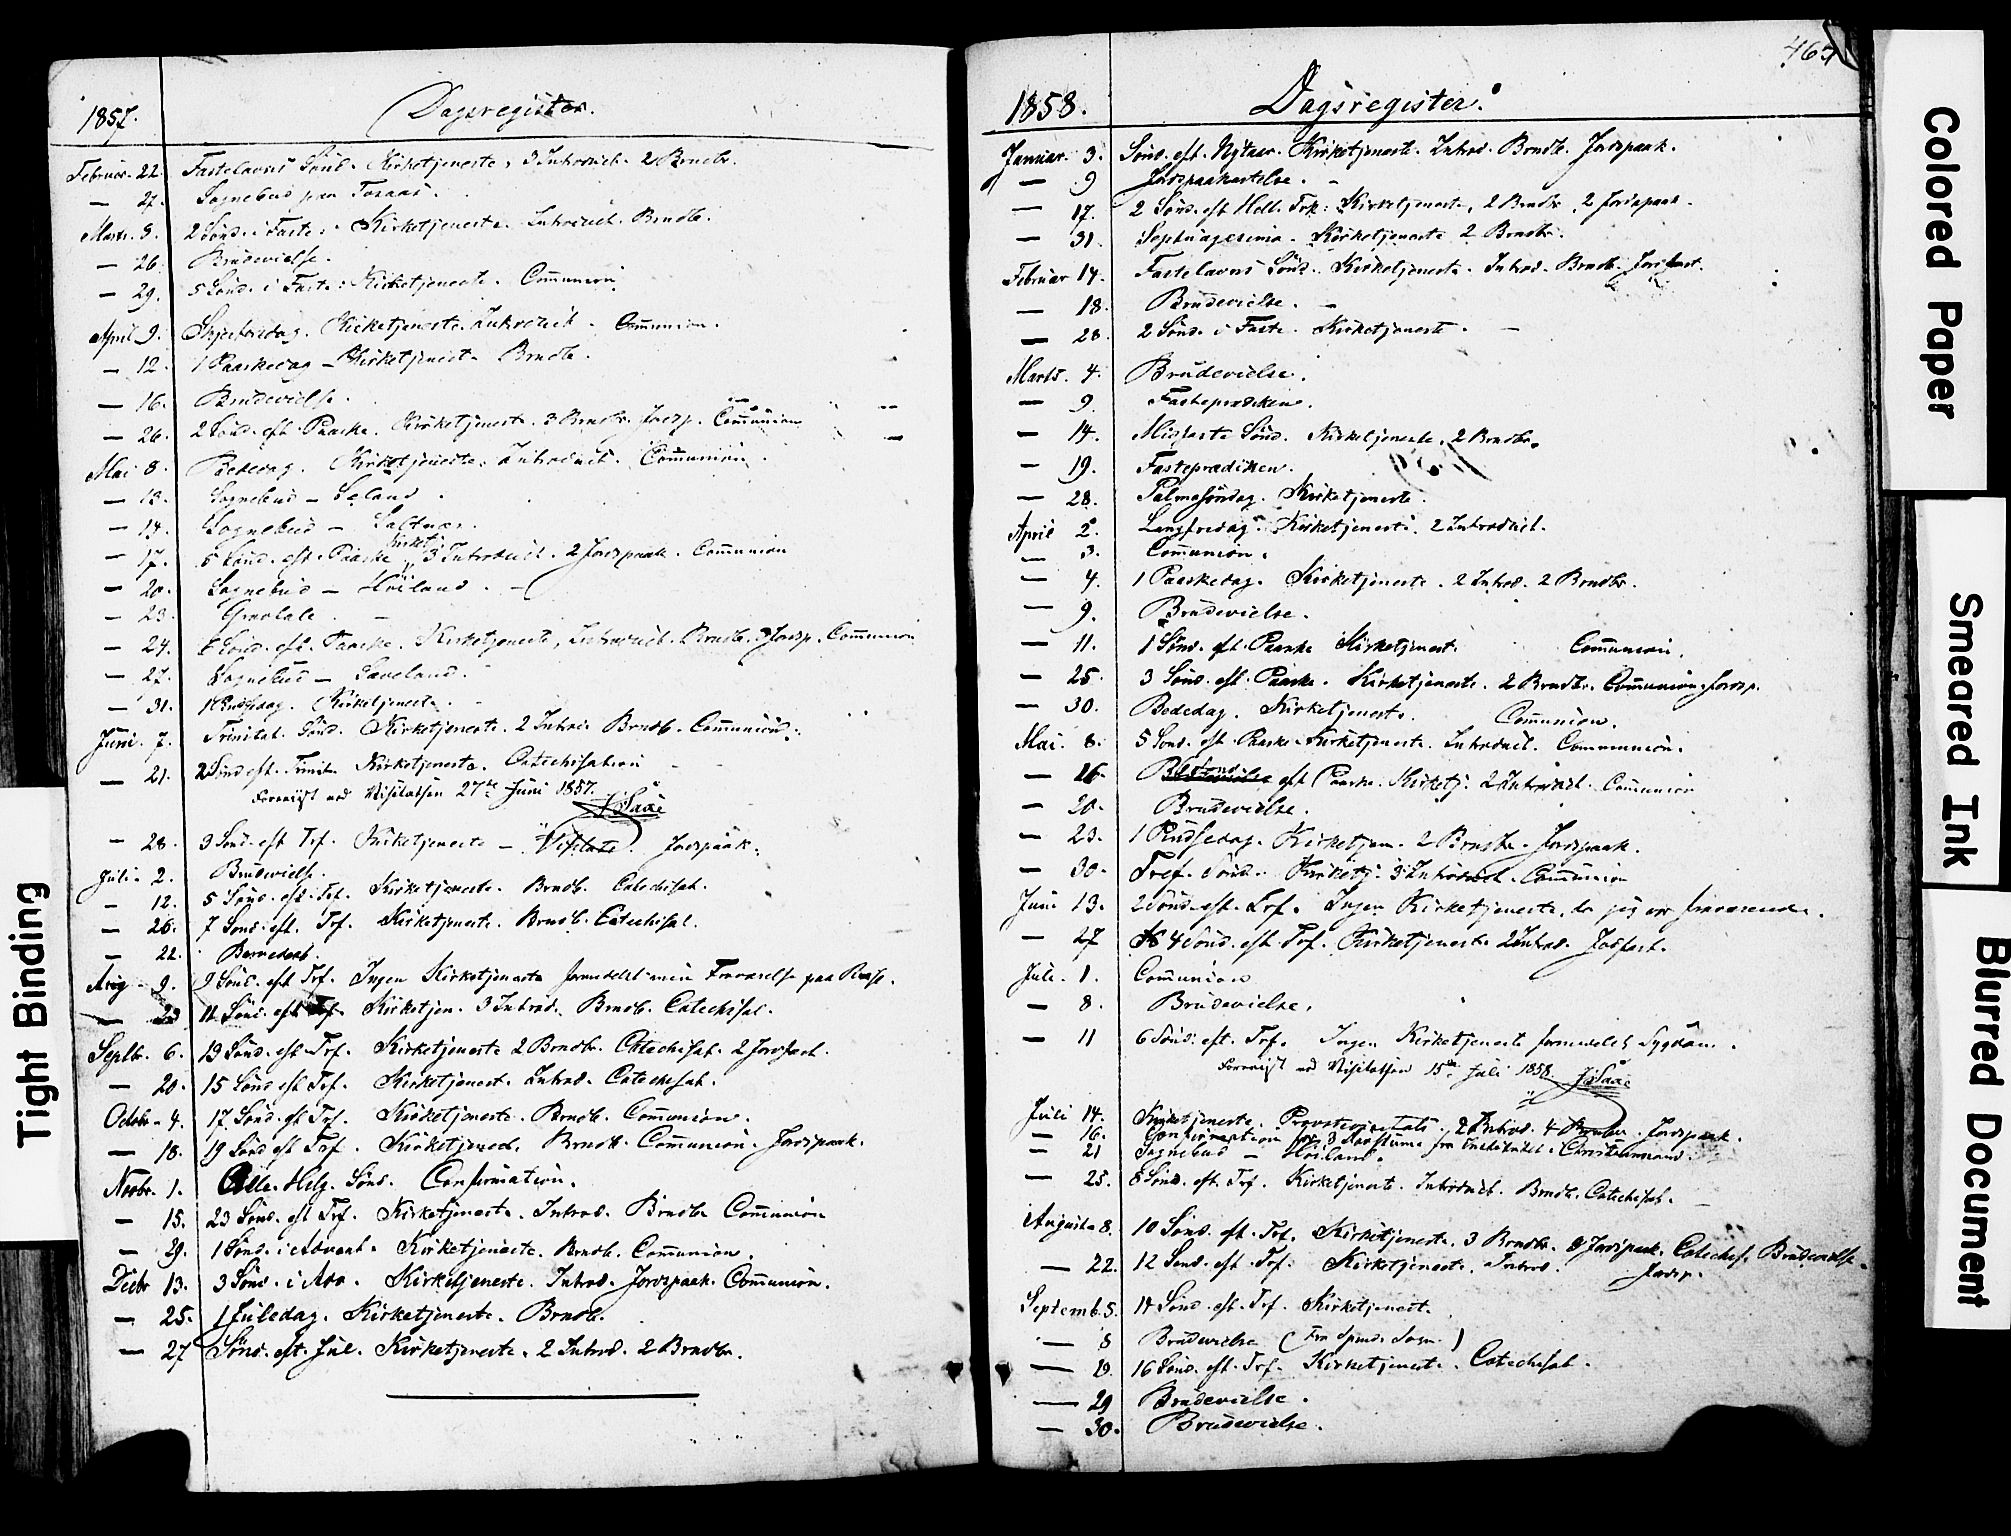 1857. Dagsregister.
Februar. 22. Fastelavns Sönd. Kirketjeneste, 3 Introduct. 2 Brndb.
— 27. Sognebud paa Tosaas.
Marts. 8. 2 Sönd. i Faste. Kirketjeneste. Introduct. Brndb.
— 26. Brudevielse.
— 29. 5 Sönd. i Faste. Kirketjeneste. Communion.
April 9. Skjertorsdag. Kirketjeneste. Introduct. Communion.
— 12. 1 Paaskedag — Kirketjenest. Brndb.
— 16. Brudevielse.
— 26. 2 Sönd. eft. Paaske. Kirketjeneste. 3 Brndb. Jordsp. Communion
Mai 8. Bededag. Kirketjeneste. Introduct. Communion.
— 13. Sognebud — Seland.
— 14. Sognebud —
Kirketj.
— 17. 5 Sönd. eft. Paaske, 3 Introduct. 2 Jordspaak. Communion
— 20. Sognebud — Höiland.
— 23. Gravtale.
— 24. 6 Sönd. eft. Paaske. Kirketjeneste, Introduct. Brndb. Jordsp. Communion
— 27. Sognebud — Laveland.
— 31. 1 Pindsedag. Kirketjeneste.
Juni. 7. Trinitat. Sönd. Kirketjeneste. 2 Introd. Brndb. Communion.
— 21. 2 Sönd. eft. Trinit. Kirketjeneste. Catechisation
Foreviist ved Visitatsen 27de Juni 1857.
— 28. 3 Sönd. eft. Tref. Kirketjeneste — Visitats. Jordspaak.
Juli. 2. Brudevielse.
— 12. 5 Sönd. eft. Tref. Kirketjeneste. Brndb. Catechisat.
— 26. 7 Sönd. eft. Tref. Kirketjeneste. Brndb. Catechisat.
— 22. Barnedaab.
Aug. 9. 9 Sönd. eft. Tref. Ingen Kirketjeneste formedelst min Fraværelse paa Reise.
— 23 11 Sönd. eft. Tref. Kirketjen. 3 Introd. Brndb. Catechisat.
Septbr. 6. 13 Sönd. eft. Tref. Kirketjeneste 2 Brndb. Catechisat. 2 Jordfæst.
— 20. 15 Sönd. eft. Tref. Kirketjenest. Introd. Catechisat.
Octobr. 4. 17. Sönd. eft. Tref. Kirketjeneste. Brndb. Communion.
— 18. 19 Sönd. eft. Tref. Kirketjenest. Brndb. Communion. Jordspaak.
Novbr. 1. Alle. Helg. Sönd. Confirmation.
— 15. 23 Sönd. eft. Tref. Kirketjeneste. Introd. Brndb. Communion
— 29. 1 Sönd. i Advent. Kirketjeneste. Brndb. Communion.
Decbr. 13. 3 Sönd. i Adv. Kirketjeneste. Introd. Jordspaak. Communion.
— 25. 1 Juledag. Kirketjeneste. Brndb.
— 27 Sönd. eft. Jul. Kirketjeneste. 2 Introd. 2 Brndb.
465
1858. Dagsregister.
Januar. 3. Sönd. eft. Nytaar. Kirketjeneste. Introd. Brndb. Jordspaak.
— 9 Jordspaakastelse.
— 17. 2 Sönd. eft. Hell. Trk: Kirketjeneste, 2 Brndb. 2 Jordspaak.
— 31. Septuagesima. Kirketjeneste 2 Brndb.
Februar 14. Fastelavns Sönd. Kirketjeneste. Introd. Brndb. Jordfæst.
— 18. Brudevielse.
— 28. 2 Sönd. i Faste. Kirketjeneste.
Marts. 4. Brudevielse.
— 9. Fasteprædiken.
— 14. Midfaste Sönd. Kirketjeneste. 2 Brndb.
— 19. Fasteprædiken.
— 28. Palmesöndag. Kirketjeneste.
April 2. Langfredag. Kirketjeneste. 2 Introduct.
— 3. Communion.
— 4. 1 Paaskedag. Kirketjeneste. 2 Introd. 2 Brndb.
— 9. Brudevielse.
— 11. 1 Sönd. eft. Paaske Kirketjenest. Communion.
— 25. 3 Sönd. eft. Paaske. Kirketjeneste. 2 Brndb. Communion. Jordsp.
— 30. Bededag. Kirketjeneste. Communion.
Mai. 8. 5 Sönd. eft. Paaske. Kirketjeneste. Introduct. Communion.
— 16. eft. Paaske. Kirketj. 2 Introduct. Communion
— 20. Brudevielse.
— 23. 1 Pindsedag. Kirketjen. 2 Brndb. Jordspaak.
— 30. Tref. Sönd. Kirketj. 3 Introduct. Communion
Juni 13. 2 Sönd. eft. Tref. Ingen Kirketjeneste, da jeg var fraværende.
— 27 4 Sönd. eft. Tref. Kirketjeneste 2 Introd. Jordfæst.
Juli. 1. Communion
— 8. Brudevielse.
— 11 6 Sönd. eft. Tref. Ingen Kirketjeneste formedelst Sygdom.
Foreviist ved Visitatsen 15de Juli 1858.
Juli 14. Kirketjeneste. Provstevisitats. 2 Introd. 4 Brndb. Jordspaak.
— 16. Confirmation for 3 Døvstumme fra Institutet i Christianssand.
— 21 Sognebud — Höiland.
— 25. 8 Sönd. eft. Tref. Kirketjeneste. Introduct. Brndb. Catechisat.
August 8. 10 Sönd. eft. Tref. Kirketjeneste. 3 Brndb. Jordspaak. Catechis. Brudevielse.
— 22. 12 Sönd. eft. Tref. Kirketjeneste. Introd. Jordsp.
Septemb. 5. 14 Sönd. eft. Tref. Kirketjenest.
— 8 Brudevielse (Fra Spinds Sogn.)
— 19. 16 Sönd. eft. Tref. Kirketjeneste. Catechisat.
— 29 Brudevielse.
— 30. Brudevielse.
Tight Binding
Colored Paper
Smeared Ink
Blurred Document